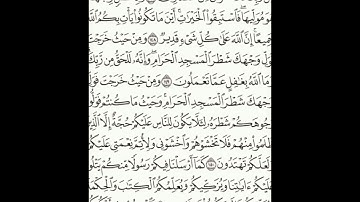 هُوَ مُوَلِّيهَا ۖ فَاسْتَبِقُوا الْخَيْرَاتِ ۚ أَيْنَ مَا تَكُونُوا يَأْتِ بِكُمُ اللَّهُ
جَمِيعًا ۚ إِنَّ اللَّهَ عَلَىٰ كُلِّ شَيْءٍ قَدِيرٌ ﴿١٤٨﴾ وَمِنْ حَيْثُ خَرَجْتَ
فَوَلِّ وَجْهَكَ شَطْرَ الْمَسْجِدِ الْحَرَامِ ۖ وَإِنَّهُ لَلْحَقُّ مِن رَّبِّكَ
وَمَا اللَّهُ بِغَافِلٍ عَمَّا تَعْمَلُونَ ﴿١٤٩﴾ وَمِنْ حَيْثُ خَرَجْتَ
فَوَلِّ وَجْهَكَ شَطْرَ الْمَسْجِدِ الْحَرَامِ ۚ وَحَيْثُ مَا كُنتُمْ فَوَلُّوا
وُجُوهَكُمْ شَطْرَهُ لِئَلَّا يَكُونَ لِلنَّاسِ عَلَيْكُمْ حُجَّةٌ إِلَّا الَّذِينَ
ظَلَمُوا مِنْهُمْ فَلَا تَخْشَوْهُمْ وَاخْشَوْنِي وَلِأُتِمَّ نِعْمَتِي عَلَيْكُمْ
وَلَعَلَّكُمْ تَهْتَدُونَ ﴿١٥٠﴾ كَمَا أَرْسَلْنَا فِيكُمْ رَسُولًا مِّنكُمْ يَتْلُو
عَلَيْكُمْ آيَاتِنَا وَيُزَكِّيكُمْ وَيُعَلِّمُكُمُ الْكِتَابَ وَالْحِكْمَةَ